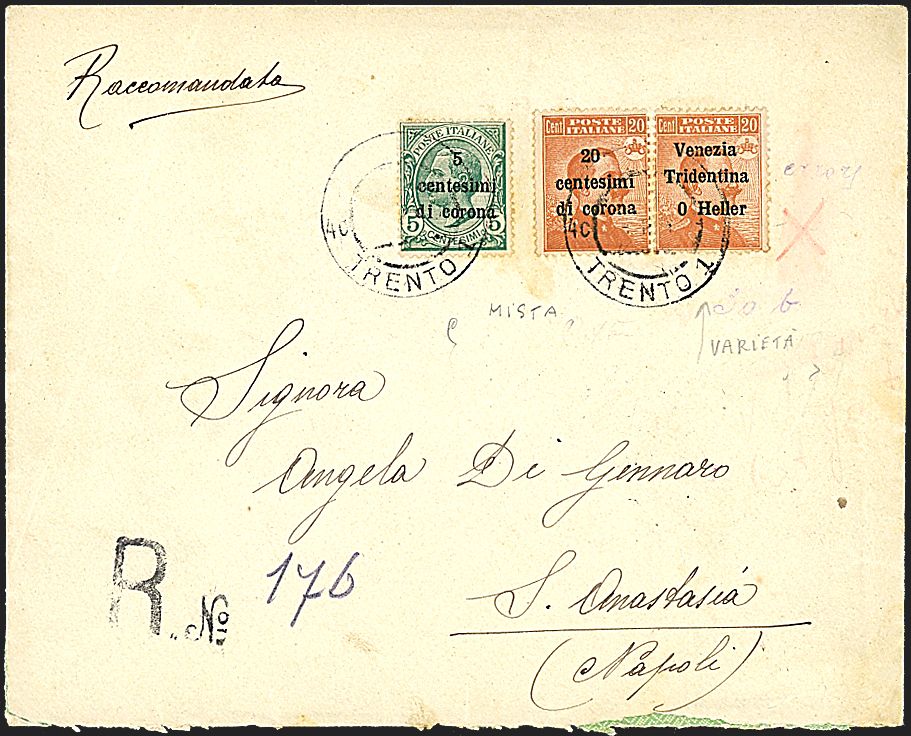 Raccomandata
POSTE ITALIANE
5
centesimi
di corona
5 CENTESIMI 5
Cent POSTE ITALIANE 20
20
centesimi
di corona
Cent POSTE ITALIANE 20
Venezia
Tridentina
0 Heller
errore
X
TRENTO 1
TRENTO 1
MISTA
VARIETÀ
Signora
Angela Di Gennaro
R. No
176
S. Anastasia
(Napoli)